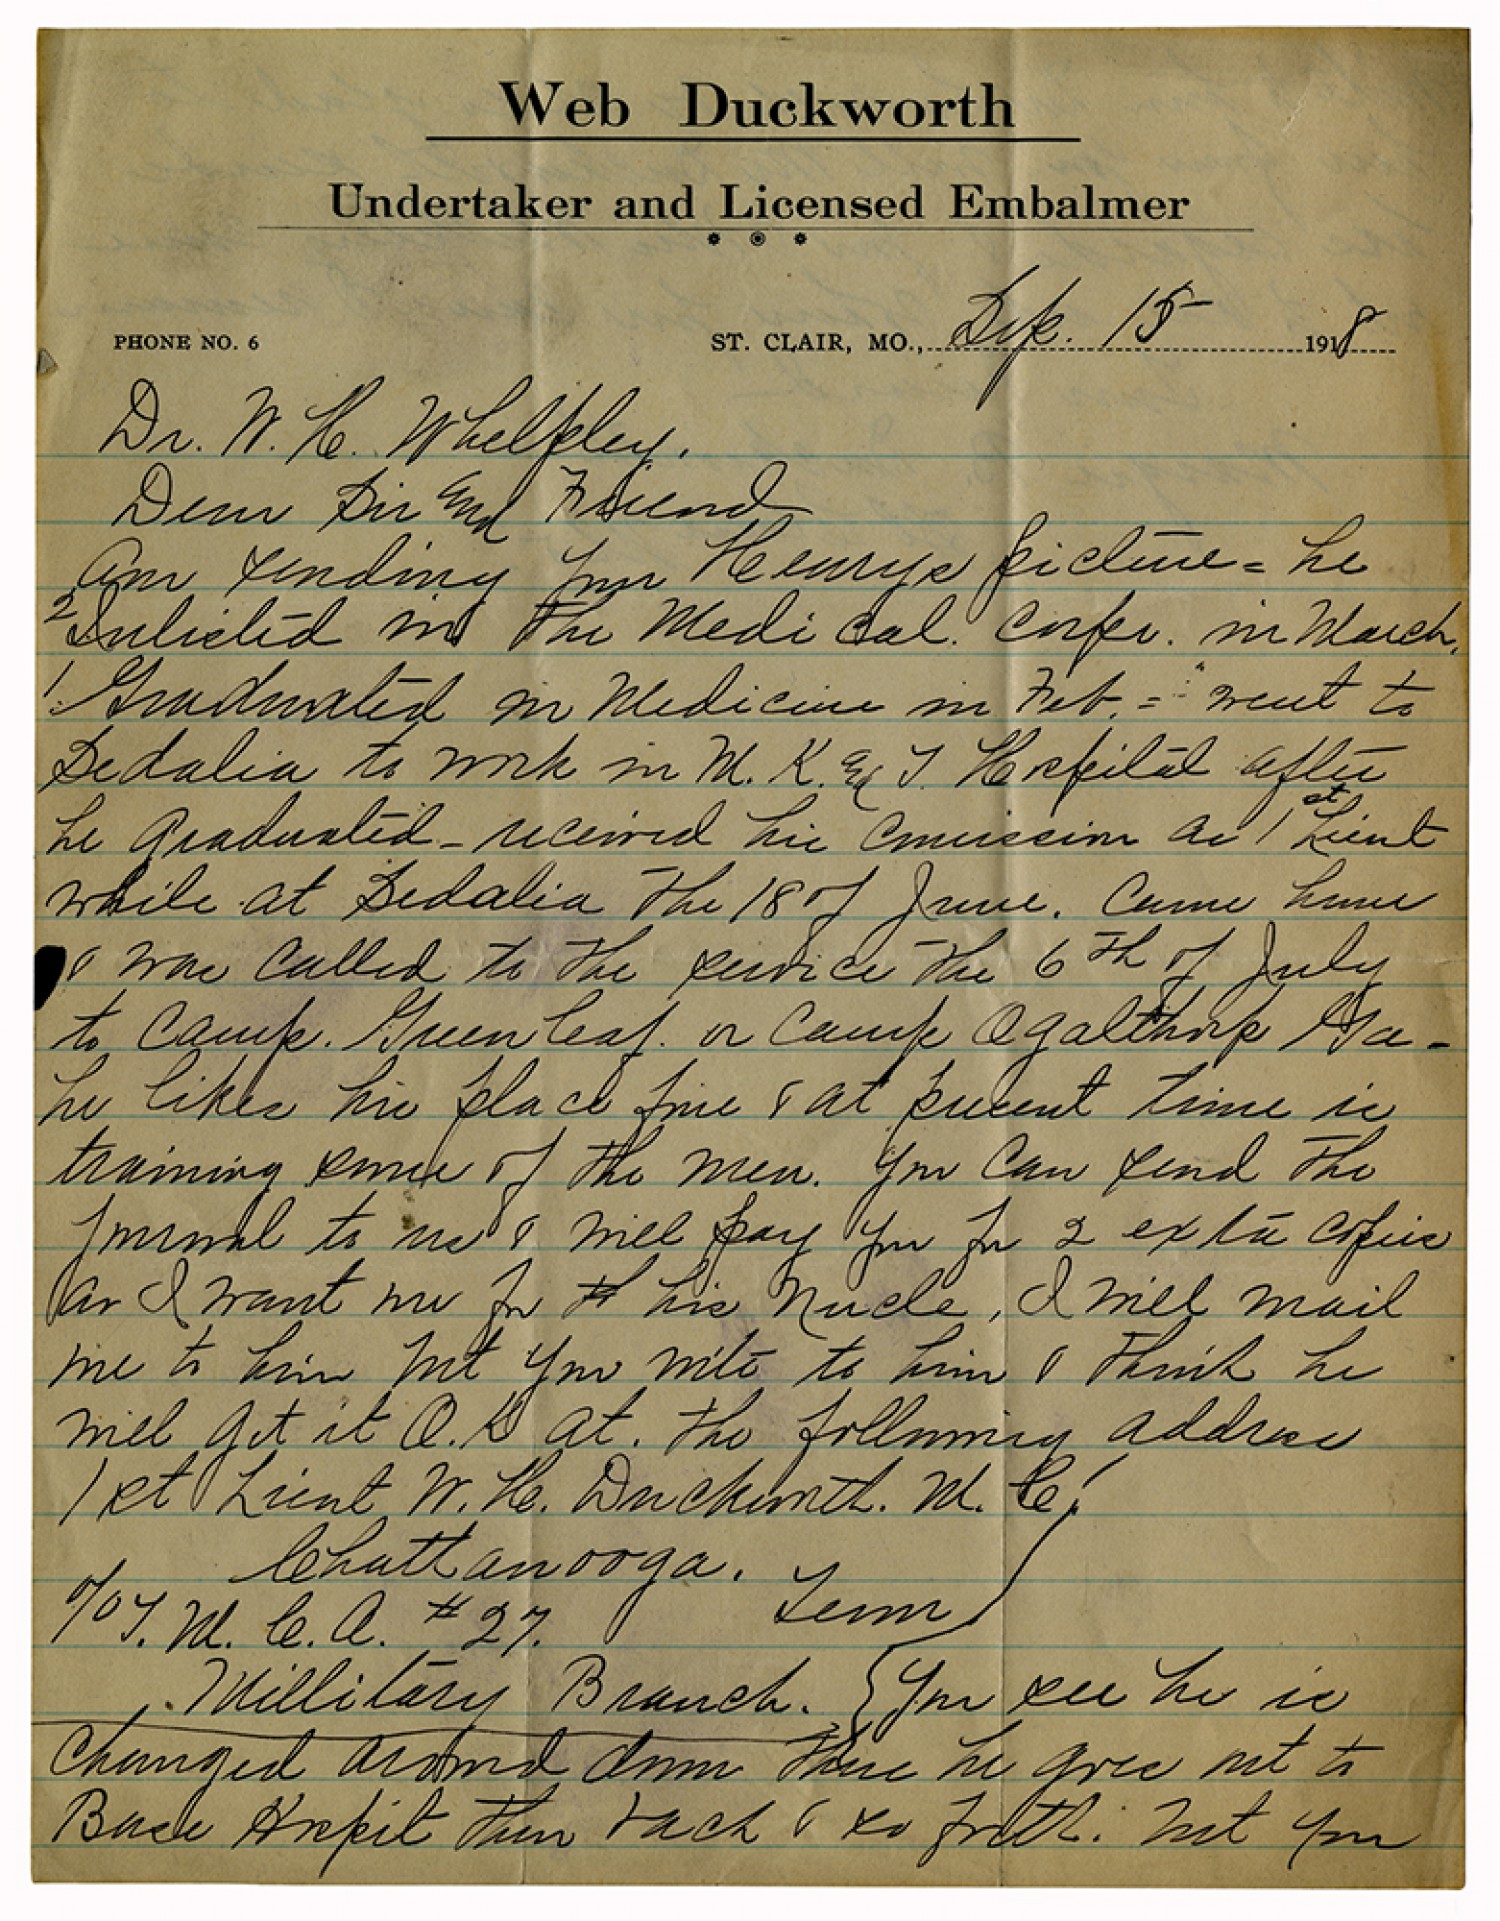 Web Duckworth
Undertaker and Licensed Embalmer
PHONE NO. 6 ST. CLAIR, MO., Sep. 15 1918
Dr. W. H. Whelpley.
Dear Sir and Friend
Am sending you Henrys picture = he
2 Enlisted in the Medical. Corps. in March.
1 Graduated in Medicine in Feb. = went to
Sedalia to work in M. K. and T. Hospital after
he graduated - received his comission as 1st Lieut
while at Sedalia the 18 of June. Came home
& was called to the service the 6th of July
to Camp. Greenleaf. or Camp Ogalthorp Ga -
he likes his place fine & at present time is
training some of the men. you can send the
Journal to us & will pay you for 2 extra copies
as I want one for his Uncle, I will mail
one to him but you write to him & think he
will get it O.K at. the following address
1st Lieut W. H. Duckworth. M. C.
Chattanooga. Tenn
c/o Y. M. C. A. # 27.
Millitary Branch. { You see he is
changed around down there he goes out to
Base Hospit then back & so forth. but you